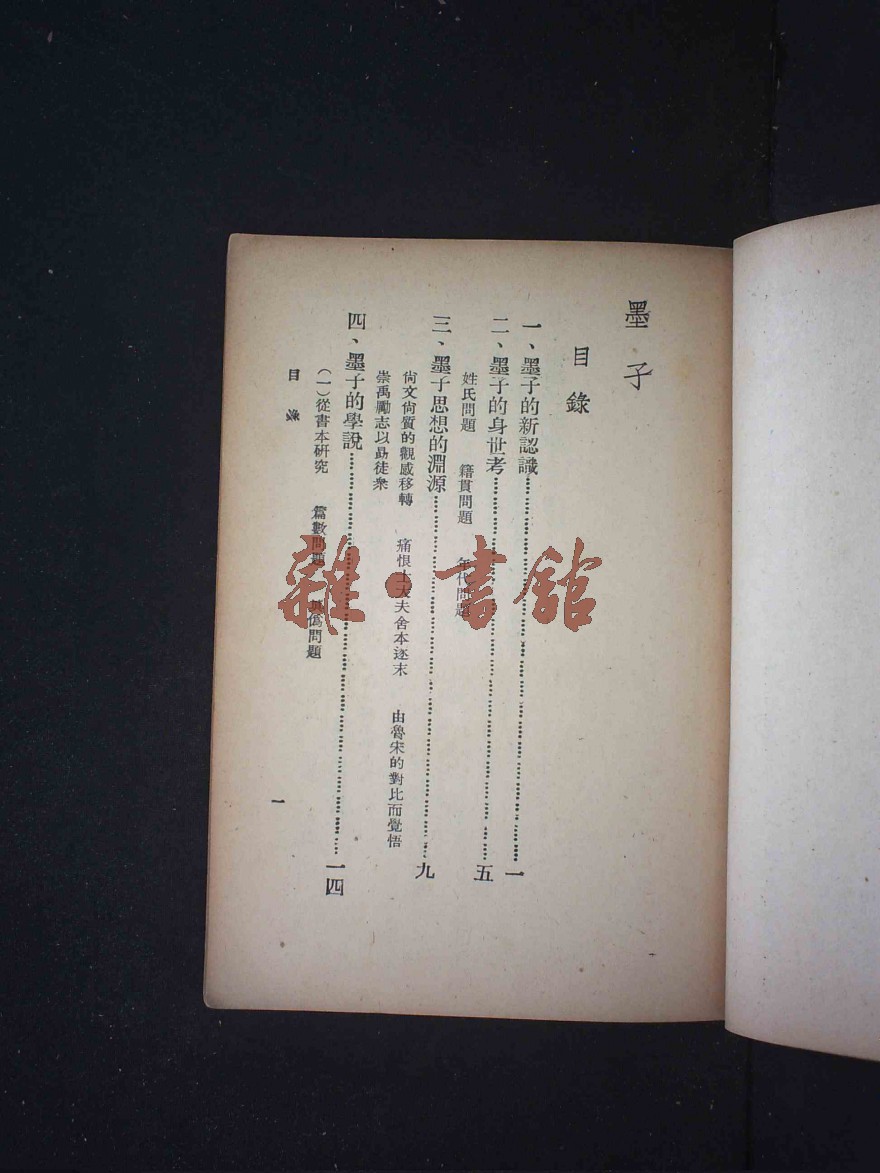 墨子
目錄
一、墨子的新認識……一
二、墨子的身世考……五
姓氏問題　籍貫問題　年代問題
三、墨子思想的淵源……九
尙文尙質的觀感移轉　痛恨士大夫舍本逐末　由魯宋的對比而覺悟
崇禹勵志以勗徒衆
四、墨子的學說……一四
(一)從書本研究　篇數問題　眞僞問題
目錄
一
雜·書館